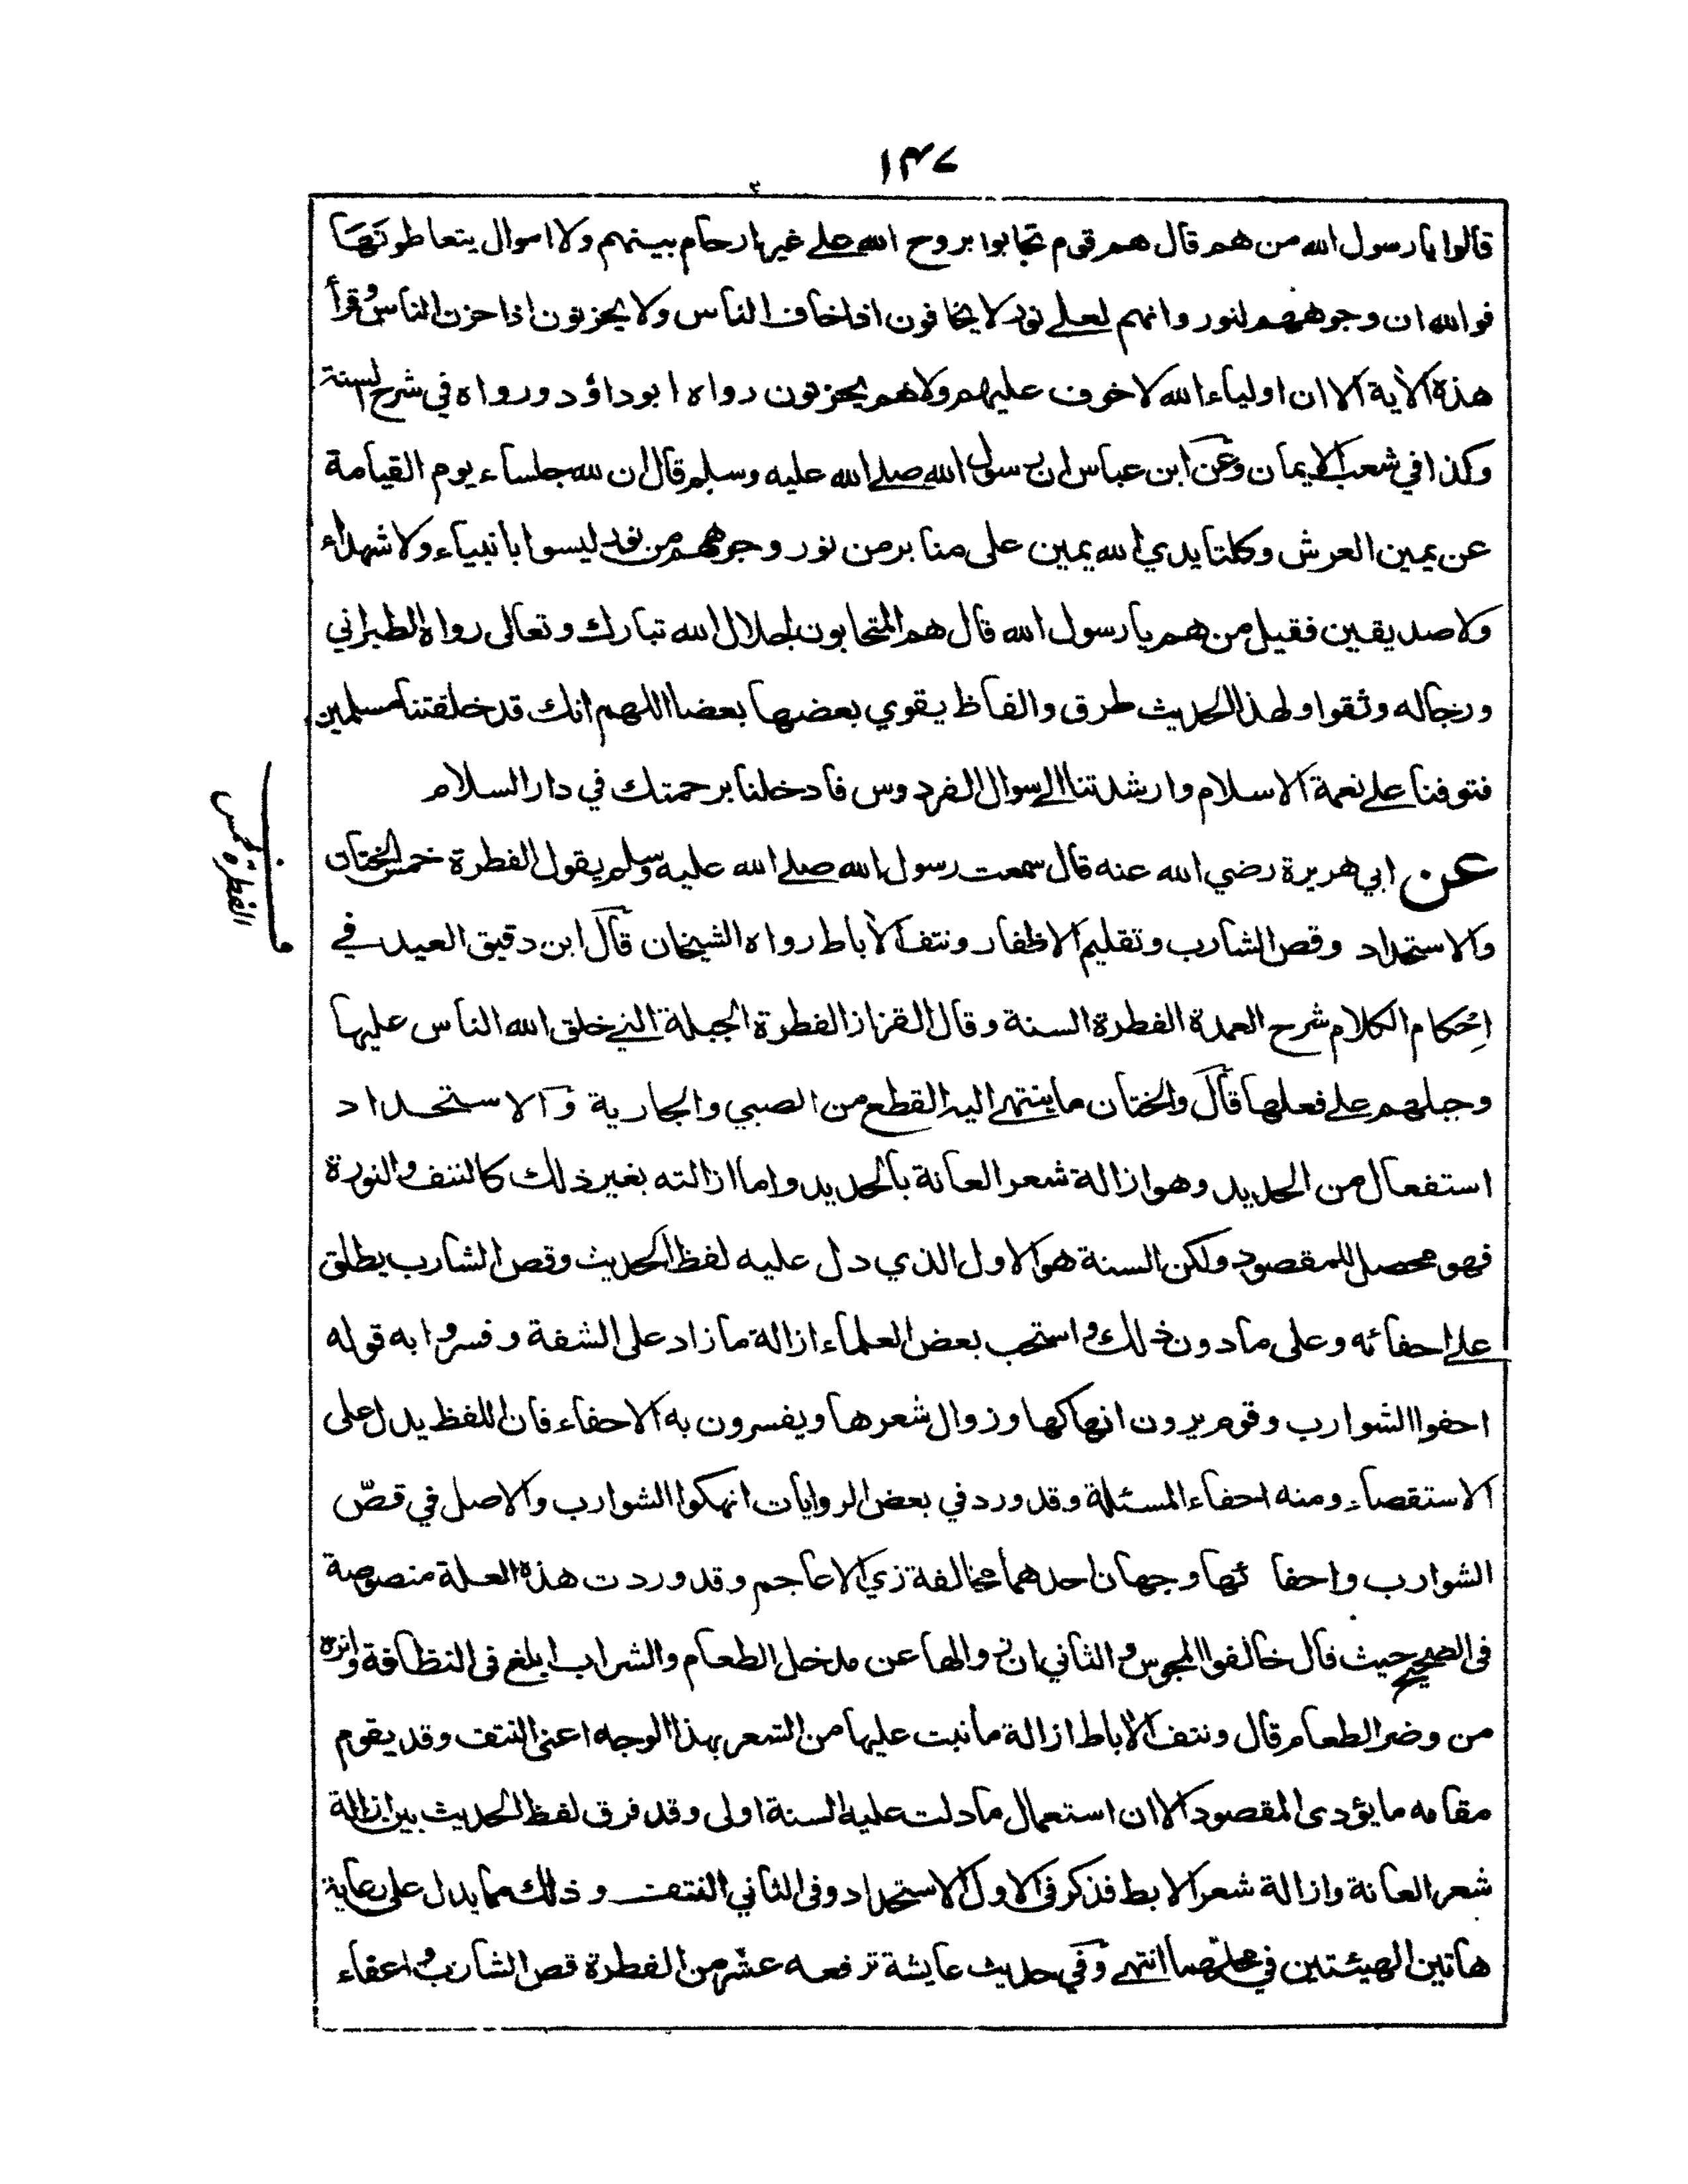 ١٤٧
قالوا يا رسول الله من هم قال هم قوم تحابوا بروح الله على غير ارحام بينهم ولا اموال يتعاطونها
فوالله ان وجوههم لنور وانهم لعلى نور لا يخافون اذا خاف الناس ولا يحزنون اذا حزن الناس وقرأ
هذه الآية الا ان اولياء الله لا خوف عليهم ولا هم يحزنون رواه ابو داؤد ورواه في شرح السنة
وكذا في شعب الايمان وعن ابن عباس ان رسول الله صلى الله عليه وسلم قال ان لله جلساء يوم القيامة
عن يمين العرش وكلتا يدي الله يمين على منابر من نور وجوههم من نور ليسوا بانبياء ولا شهداء
ولا صديقين فقيل من هم يا رسول الله قال هم المتحابون لجلال الله تبارك وتعالى رواه الطبراني
ورجاله وثقوا ولهذا الحديث طرق والفاظ يقوي بعضها بعضا اللهم انك قد خلقتنا مسلمين
فتوفنا على نعمة الاسلام وارشدتنا الى سوال الفردوس فادخلنا برحمتك في دار السلام
عن ابي هريرة رضي الله عنه قال سمعت رسول الله صلى الله عليه وسلم يقول الفطرة خمس الختان
والاستحداد وقص الشارب وتقليم الاظفار ونتف الآباط رواه الشيخان قال ابن دقيق العيد في
إحكام الكلام شرح العمدة الفطرة السنة وقال القزاز الفطرة الجبلة التي خلق الله الناس عليها
وجبلهم على فعلها قال والختان ما ينتهى اليه القطع من الصبي والجارية والاستحداد
استفعال من الحديد وهو ازالة شعر العانة بالحديد واما ازالته بغير ذلك كالنتف والنورة
فهو محصل للمقصود ولكن السنة هو الاول الذي دل عليه لفظ الحديث وقص الشارب يطلق
على احفائه وعلى ما دون ذلك واستحب بعض العلماء ازالة ما زاد على الشفة وفسروا به قوله
احفوا الشوارب وقوم يرون انهاكها وزوال شعرها ويفسرون به الاحفاء فان اللفظ يدل على
الاستقصاء ومنه احفاء المسئلة وقد ورد في بعض الروايات انهكوا الشوارب والاصل في قصّ
الشوارب واحفا ئها وجهان احدهما مخالفة زي الاعاجم وقد وردت هذه العلة منصوصة
فى الصحيح حيث قال خالفوا المجوس والثاني ان زوالها عن مدخل الطعام والشراب ابلغ فى النظافة وانزه
من وضر الطعام قال ونتف الآباط ازالة ما نبت عليها من الشعر بهذا الوجه اعني النتف وقد يقوم
مقامه ما يؤدى المقصود الا ان استعمال ما دلت عليه السنة اولى وقد فرق لفظ الحديث بين ازالة
شعر العانة وازالة شعر الابط فذكر فى الاول الاستحداد وفى الثاني النتف وذلك مما يدل على رعاية
هاتين الهيئتين في محلهما انتهى وفي حديث عايشة ترفعه عشر من الفطرة قص الشارب واعفاء
الفطرة خمس